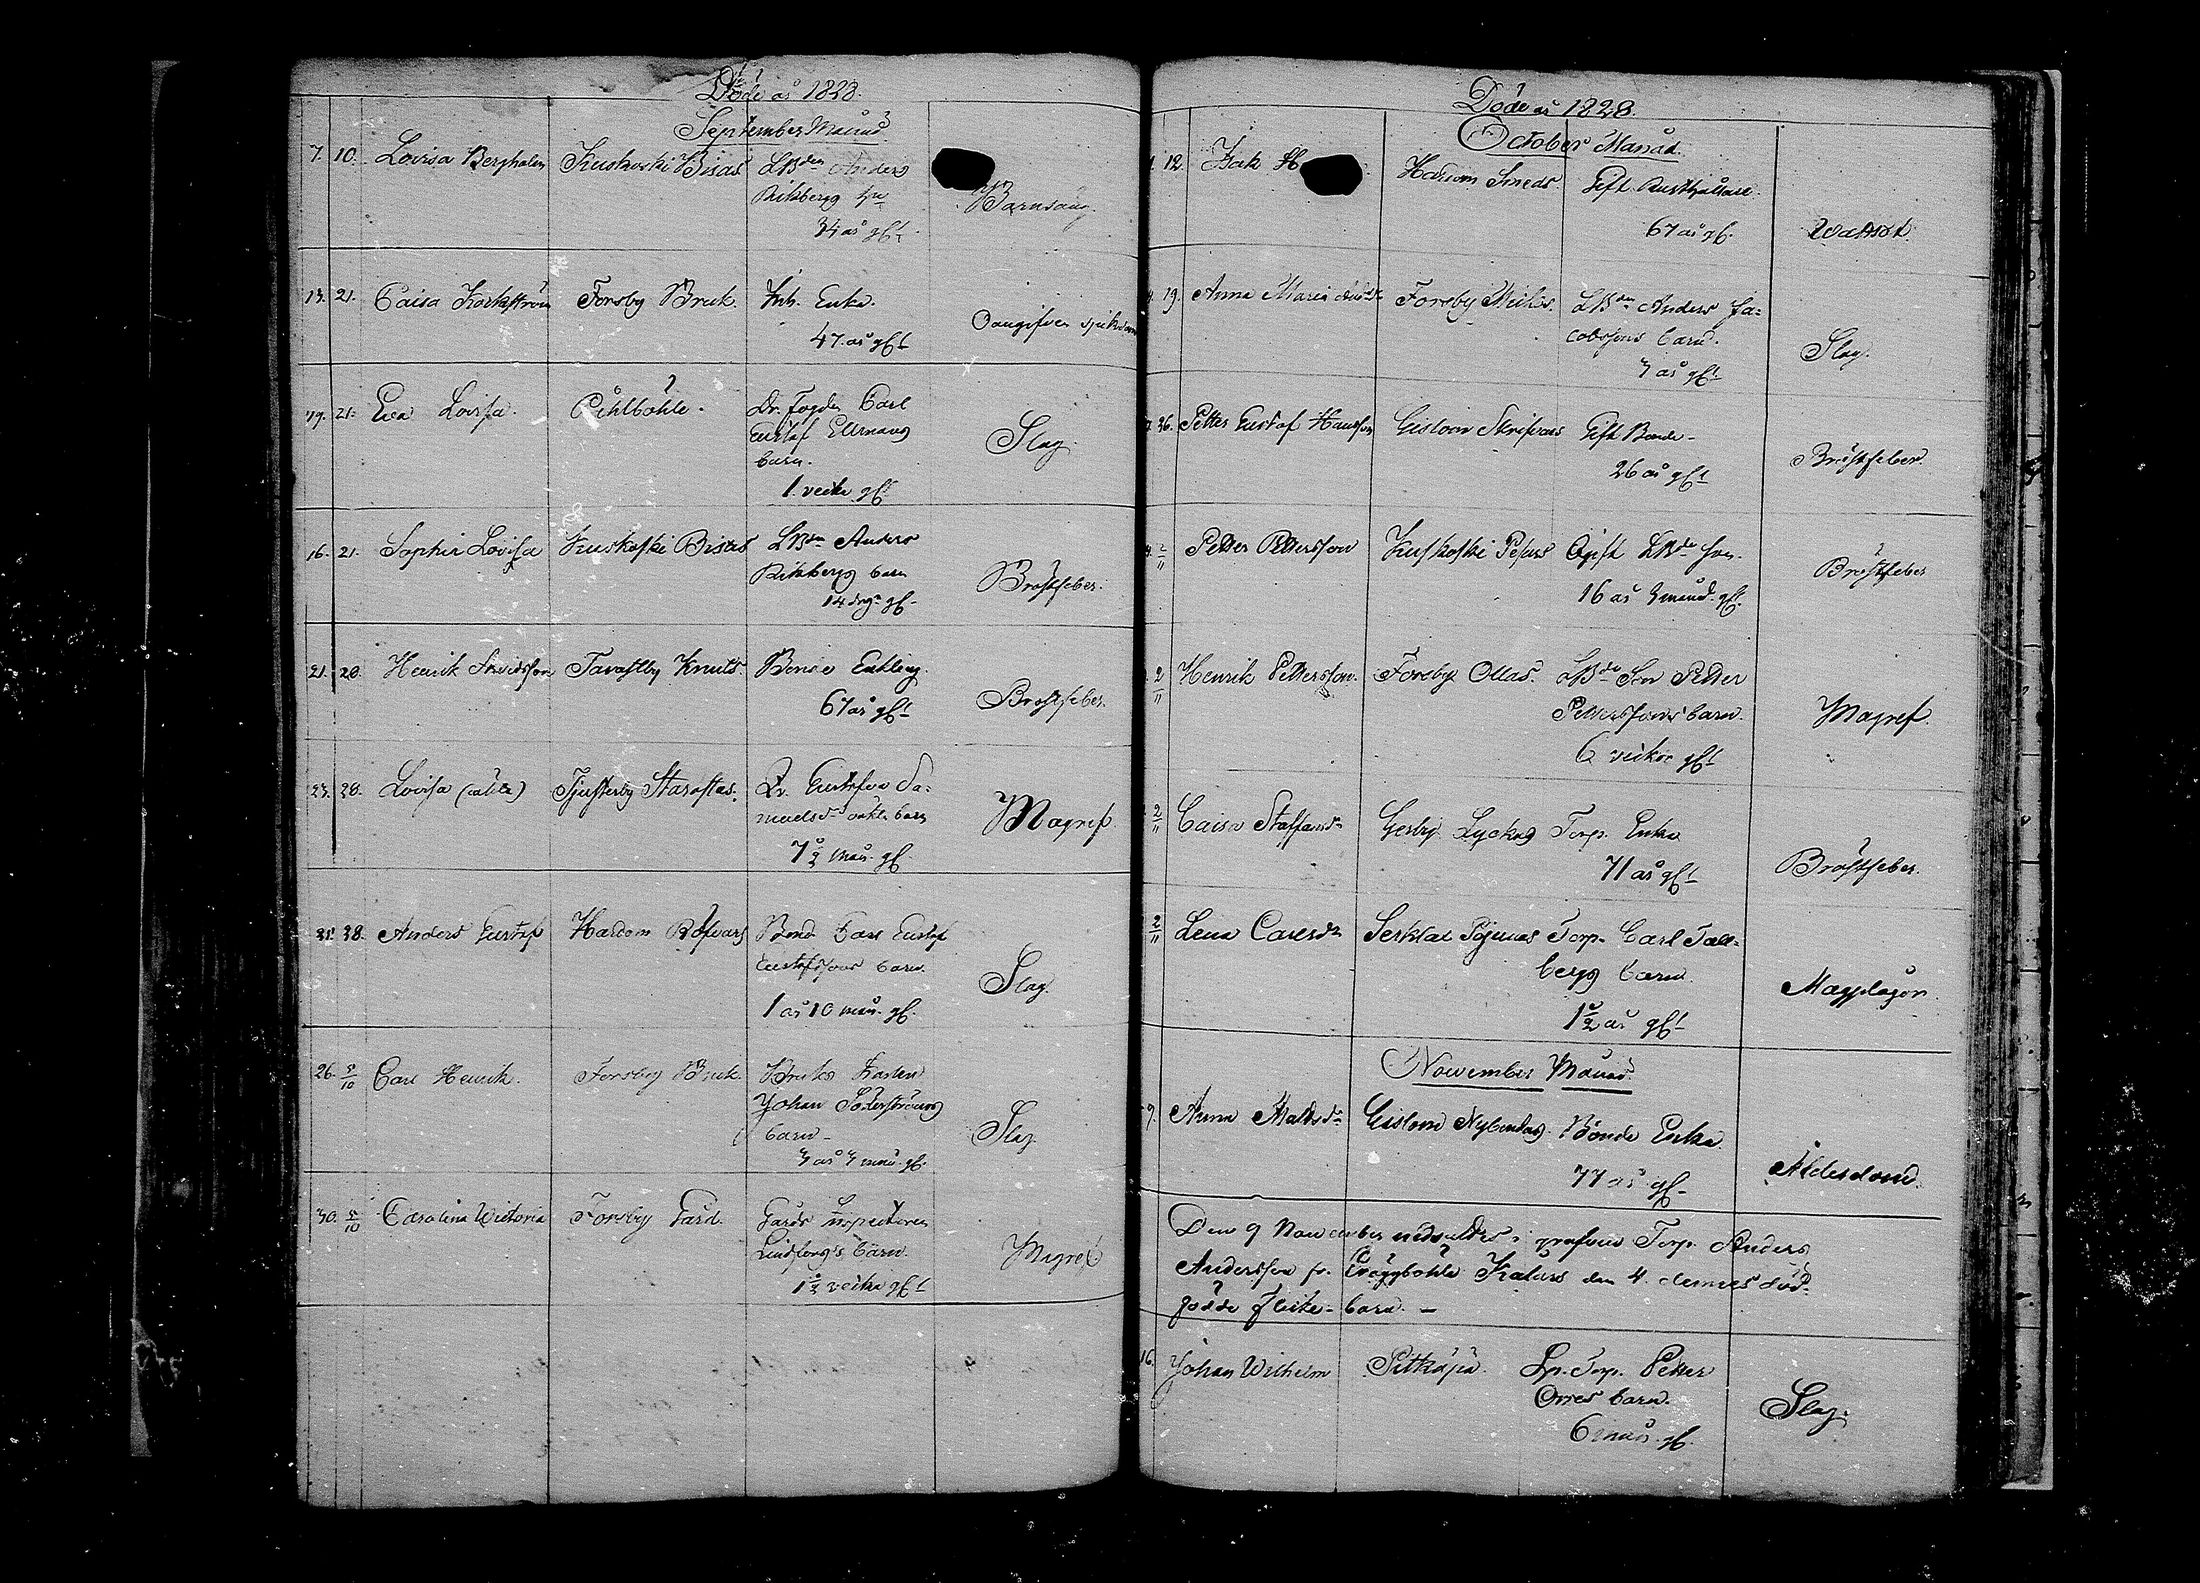 Döde år 1828.
September Månad
7. 10. Lovisa Berghalen Kuskoski Bisas LBden Anders
Rikberg hu
34 år gl
Barnsäng.
13. 21. Caisa Karlström Forsby Bruk. Inh. Enka.
47. år gl
Oangifven sjukdom
21. Eva Lovisa. Pihlbohle. Dr. Fogden Carl
Gustaf Ellmans
barn.
1. vecka gl
Slag.
16. 21. Sophia Lovisa Kuskoski Bisas LBdn Anders
Rikberg barn
14 dagr gl.
Bröstfeber.
21. 28. Henrik Knutsson Tavastby Knuts. Bonde Enkling.
67 år gl
Bröstfeber.
23. 28. Lovisa (oäkta) Tjusterby Starastas. Gustafva Sa=
muelsdr oäkta barn
7 ½ mån. gl.
Magref.
28. Anders Gustaf Hardom Räfvars Bond. Carl Gustaf
Gustafssons barn.
1 år 10 mån. gl.
Slag.
26. 5/10 Carl Henrik. Forsby Bruk. Bruks Karlen
Johan Söderströms
barn
3 år 3 mån. gl.
Slag.
30. 5/10 Carolina Wictoria Forsby Gård. Gårds Inspectoren
Lindbergs barn.
1 ½ vecka gl
Magref
Döde år 1828.
October Månad.
12. Isak H Hardom Smeds. Gift Rusthållare.
67 år gl.
Wattsot.
19. Anna Maria Andsdr Forsby Mickels. LBdn Anders Ja=
cobssons barn.
3 år gl
Slag.
26. Petter Gustaf Hansson Gislom Skrifvars Gift Bonde
26 år gl
Bröstfeber.
2/11 Petter Pettersson Kuskoski Pehrs Ogift LBde Son.
16 år 3 månd. gl.
Bröstfeber
2/11 Henrik Pettersson. Forsby Ollas. LBde Son Petter
Petterssons barn.
6 veckor gl
Magref.
2/11 Caisa Staffansdr Gerby Lyckas Torp. Enka
71 år gl
Bröstfeber.
2/11 Lena Carlsdr Serklax Torp. Carl Tall=
bergs barn.
1 ½ år gl
Magplågor.
November Månad.
9. Anna Mattsdr Gislom Nybondas Bonde Enka
77 år gl
Ålderdom.
Den 9 November nedsattes i grafven Torp. Anders
Andersson fr. Kraggbohle den 4. dennes död=
födde flicke-barn. —
16. Johan Wilhelm Pitkäpä. Sp. Torp. Petter
Orres barn.
6 mån. gl.
Slag.